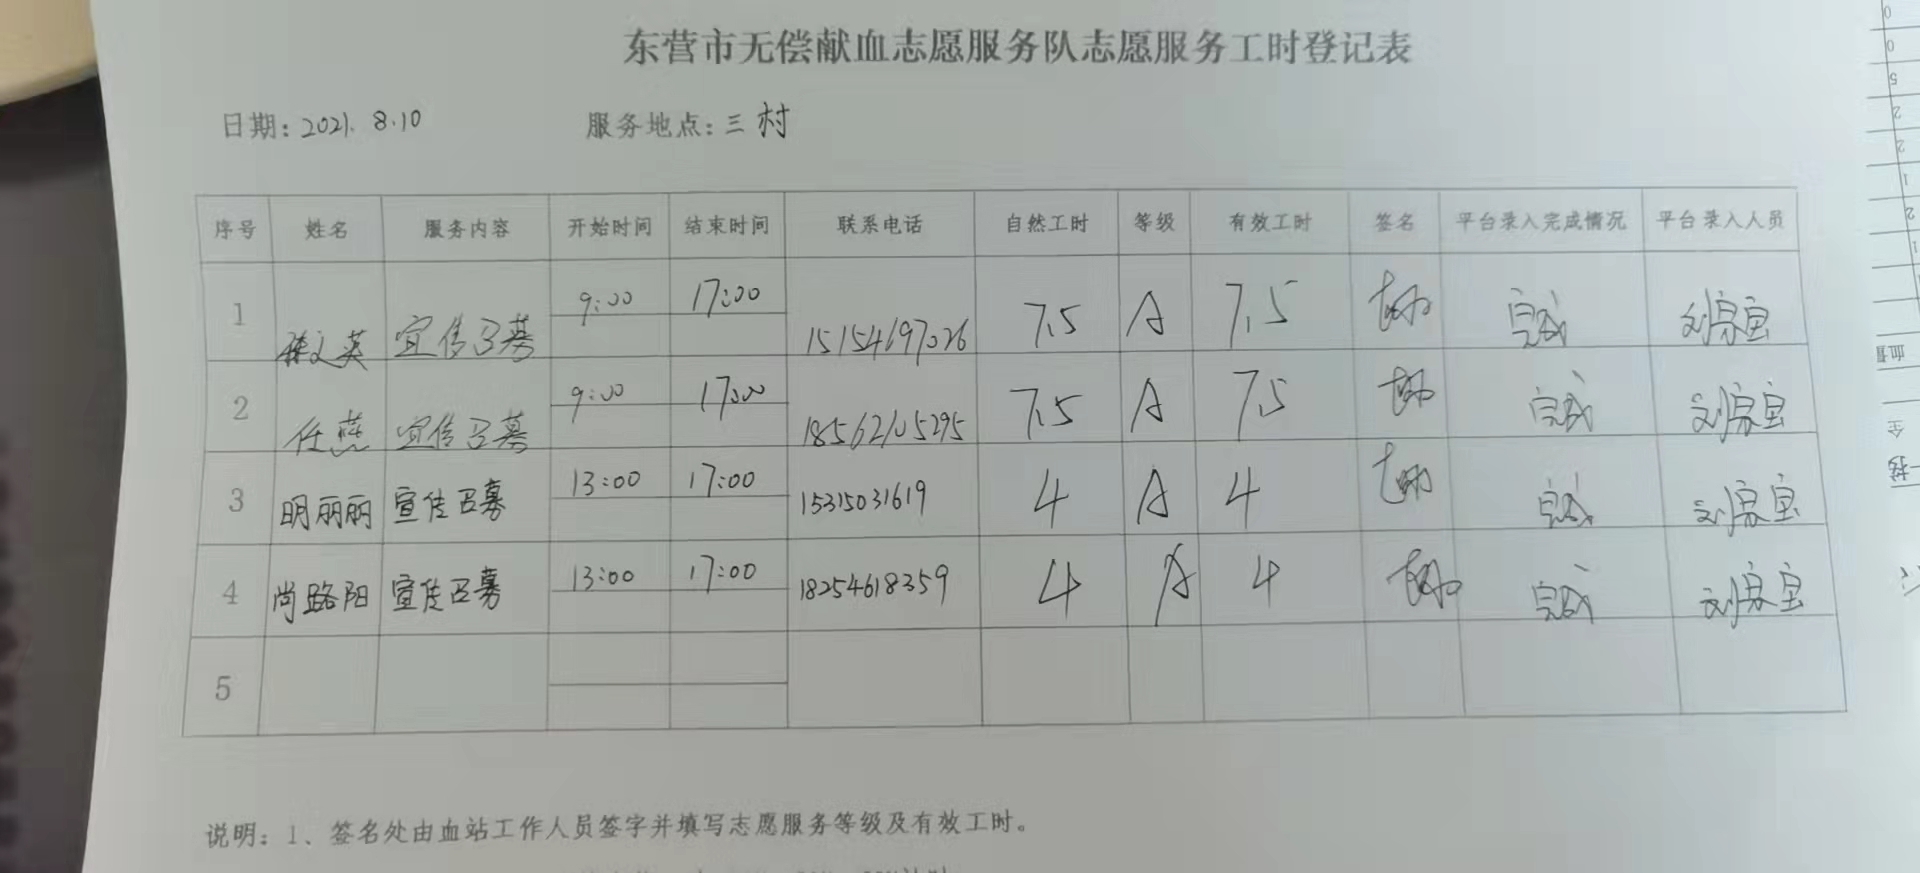 东营市无偿献血志愿服务队志愿服务工时登记表
日期: 2021. 8.10 服务地点: 三村
序号 姓名 服务内容 开始时间 结束时间 联系电话 自然工时 等级 有效工时 签名 平台录入完成情况 平台录入人员
1 文英 宣传召募 9:00 17:00 15154697026 7.5 A 7.5 完成 刘宗宝
2 任燕 宣传召募 9:00 17:00 18562105295 7.5 A 7.5 完成 刘宗宝
3 明丽丽 宣传召募 13:00 17:00 15315031619 4 A 4 完成 刘宗宝
4 尚路阳 宣传召募 13:00 17:00 18254618359 4 A 4 完成 刘宗宝
5
说明: 1、签名处由血站工作人员签字并填写志愿服务等级及有效工时。